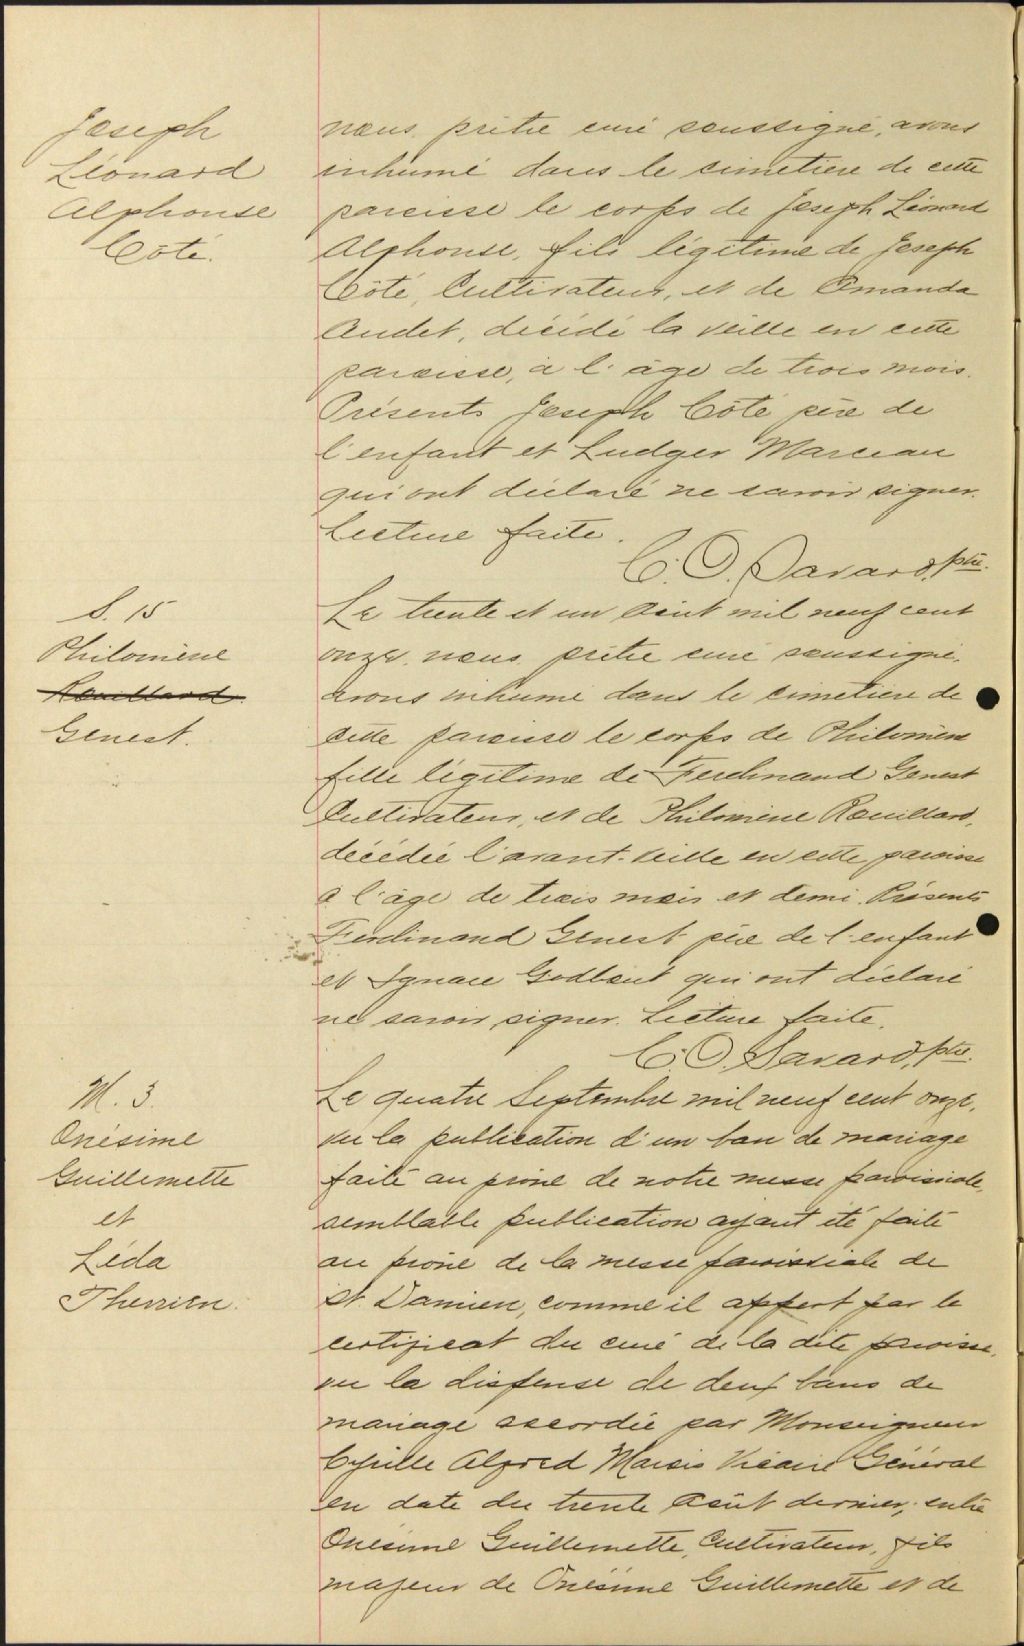 Joseph
Léonard
Alphonse
Côté.
nous, prêtre curé soussigné, avons
inhumé dans le cimetière de cette
paroisse le corps de Joseph Léonard
Alphonse, fils légitime de Joseph
Côté, Cultivateur, et de Amanda
Audet, décédé la veille en cette
paroisse, à l'âge de trois mois.
Présents Joseph Côté père de
l'enfant et Ludger Marceau
qui ont déclaré ne savoir signer.
Lecture faite.
C. O. Savard, ptre.
S. 15
Philomène
Rouillard
Genest.
Le trente et un Août mil neuf cent
onze, nous, prêtre curé soussigné,
avons inhumé dans le cimetière de
cette paroisse le corps de Philomène
fille légitime de Ferdinand Genest
Cultivateur, et de Philomène Rouillard,
décédée l'avant-veille en cette paroisse
à l'âge de trois mois et demi. Présents
Ferdinand Genest père de l'enfant
et Ignace Godbout qui ont déclaré
ne savoir signer. Lecture faite.
C. O. Savard, ptre.
M. 3.
Onésime
Guillemette
et
Léda
Therrien.
Le quatre Septembre mil neuf cent onze,
vu la publication d'un ban de mariage
faite au prône de notre messe paroissiale,
semblable publication ayant été faite
au prône de la messe paroissiale de
St Damien, comme il appert par le
certificat du curé de la dite paroisse,
vu la dispense de deux bans de
mariage accordée par Monseigneur
Cyrille Alfred Marois Vicaire Général
en date du trente Août dernier, entre
Onésime Guillemette, Cultivateur, fils
majeur de Onésime Guillemette et de